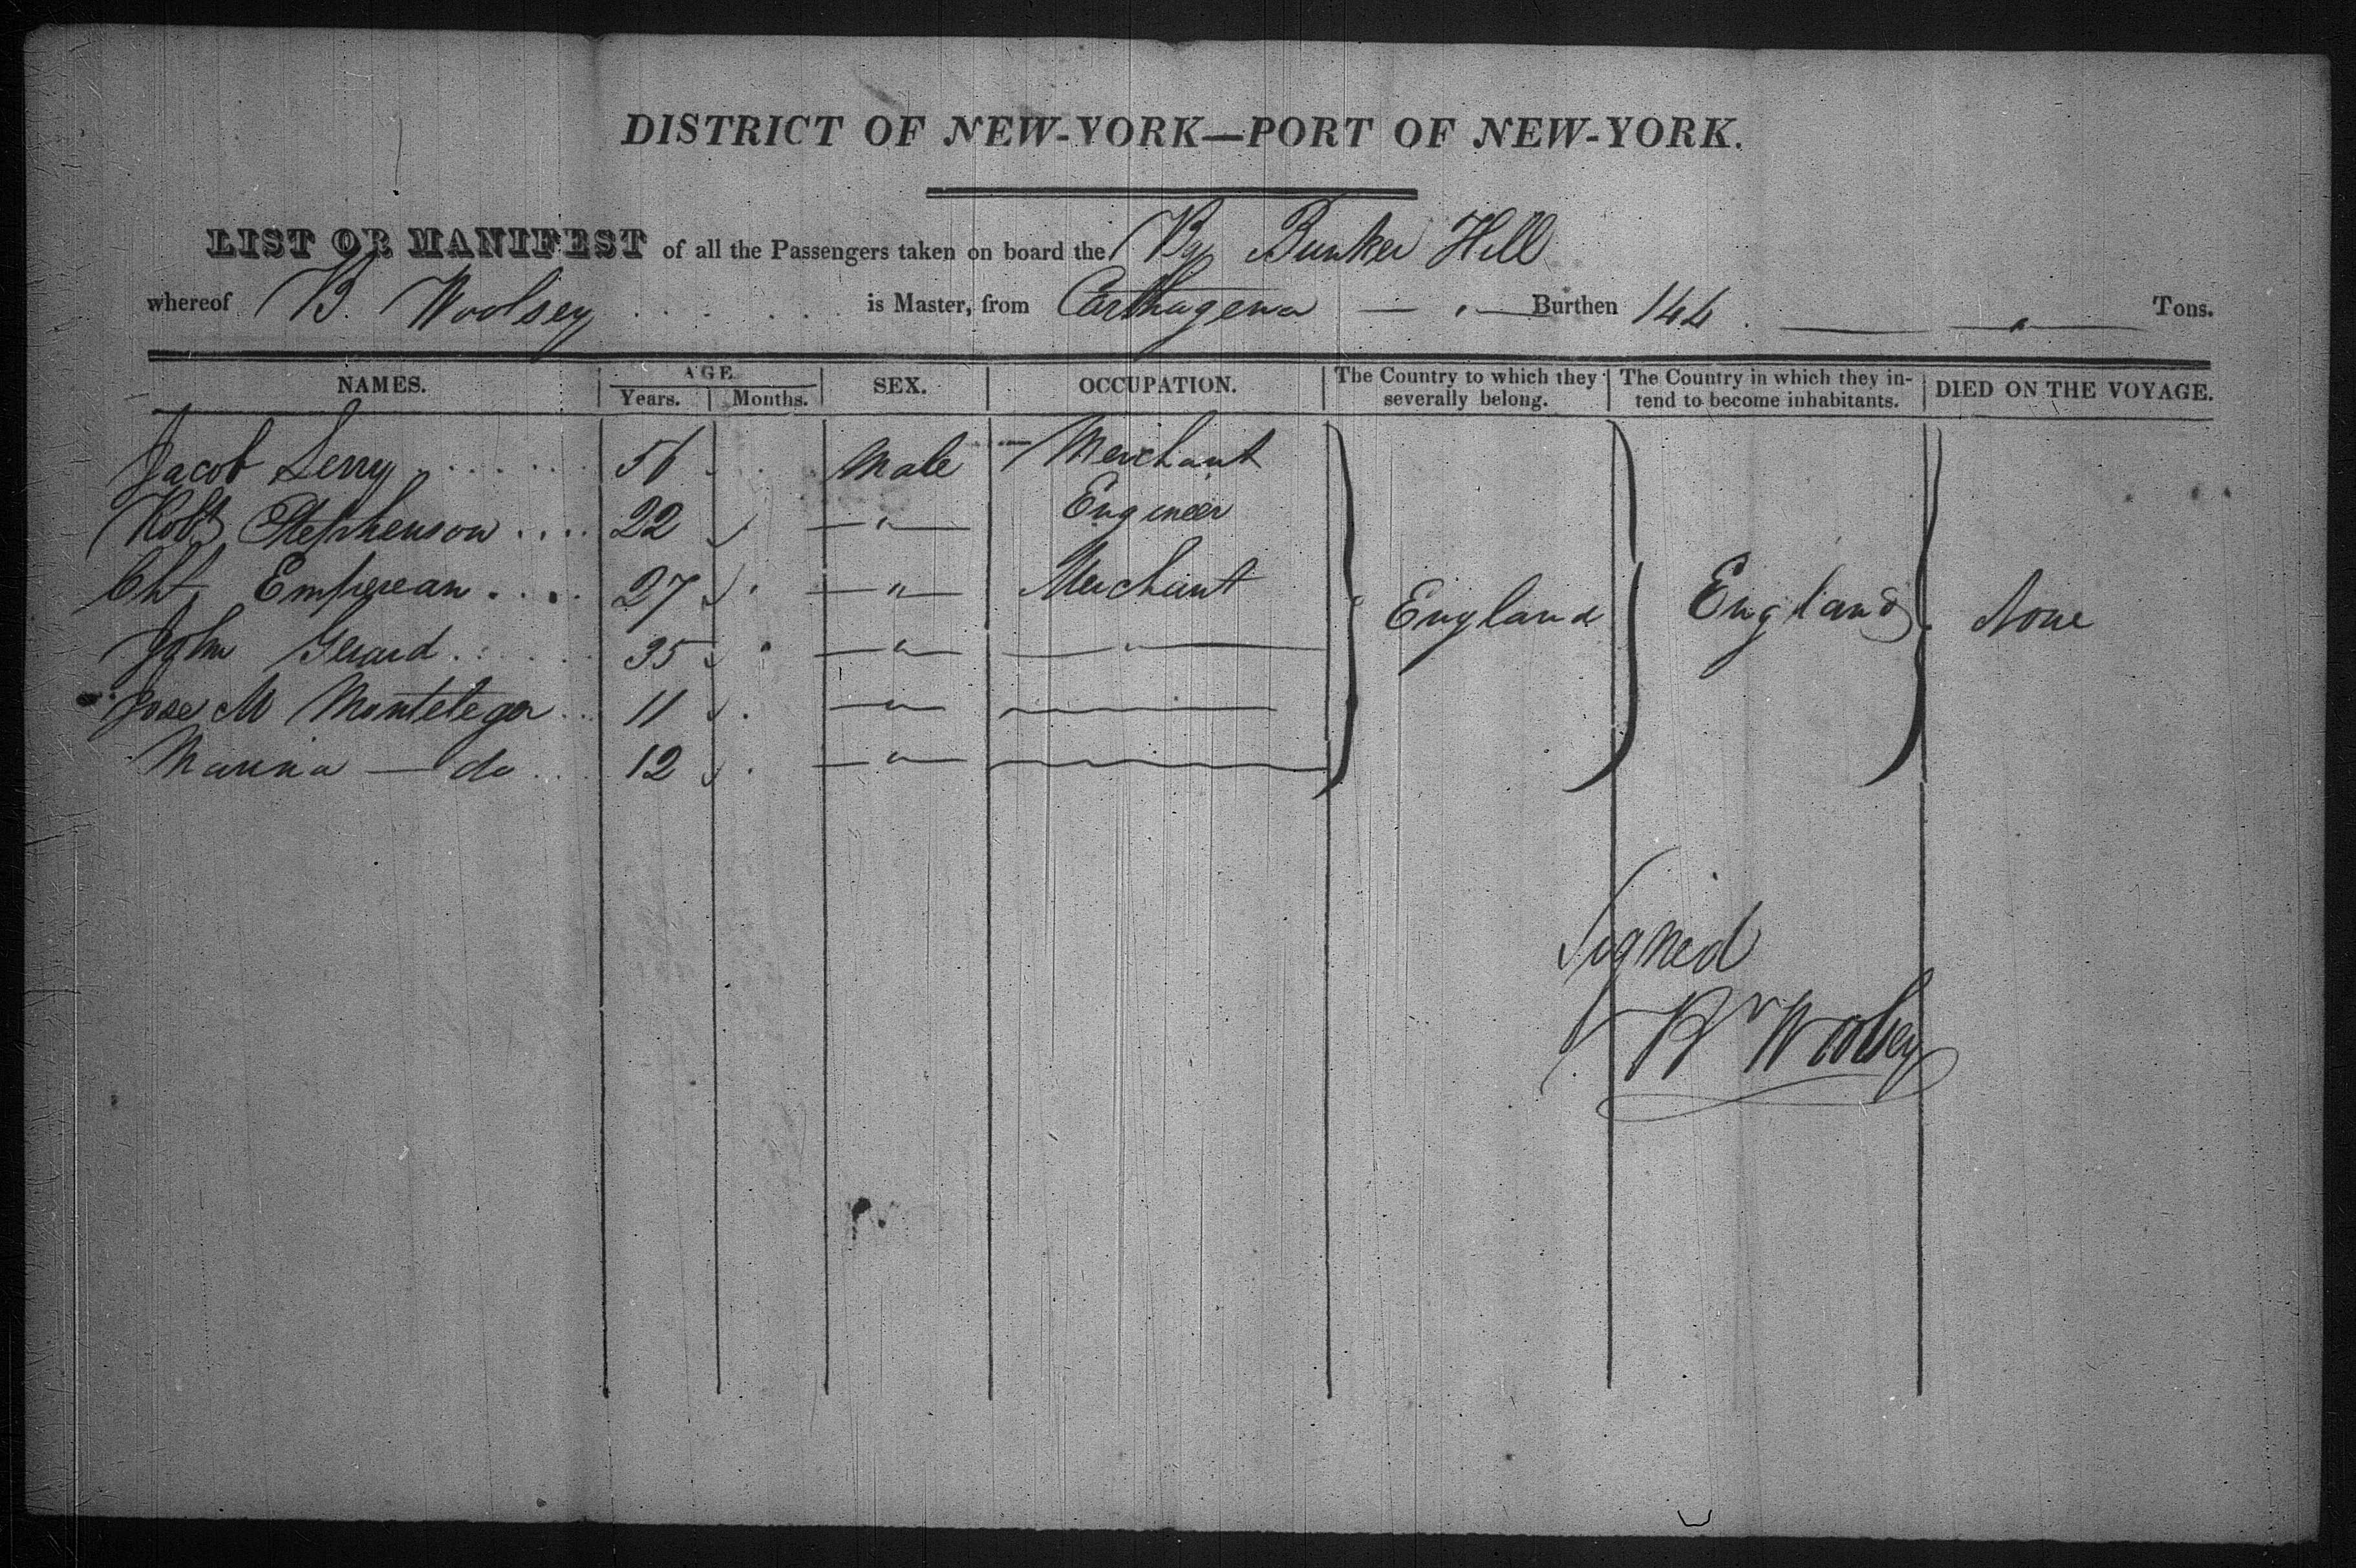 DISTRICT OF NEW-YORK—PORT OF NEW-YORK.
LIST OR MANIFEST of all the Passengers taken on board the Bg Bunker Hill
whereof B. Woolsey is Master, from Carthagena — " — Burthen 144 . — " — Tons.
NAMES. AGE Years. Months. SEX. OCCUPATION. The Country to which they severally belong. The Country in which they intend to become inhabitants. DIED ON THE VOYAGE.
Jacob 56 Male Merchant
Robt Stephenson 22 — " — Engineer
Empereau 27 — " — Merchant
John Gerard 35 — " — — " — England England None
Jose M 11 — " —
Marina — do 12 — " —
Signed
Br Woolsey